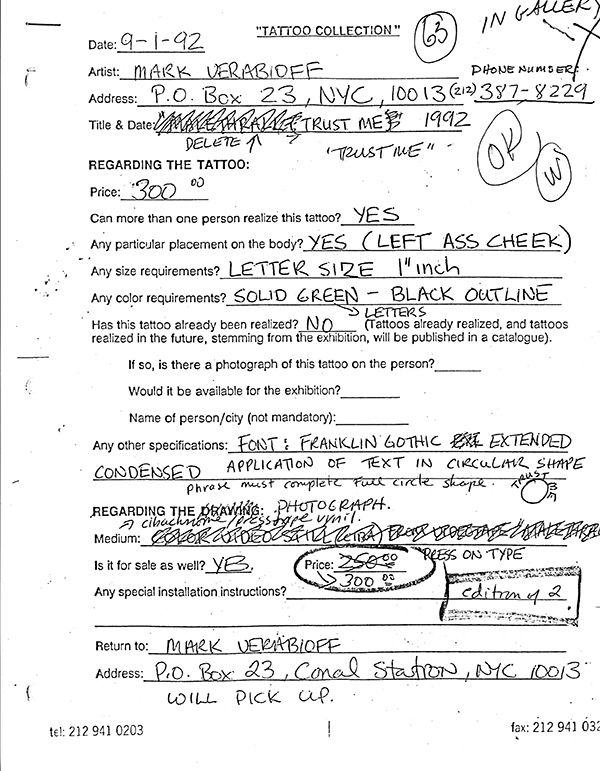 "TATTOO COLLECTION"
63
IN GALLERY
Date: 9-1-92
Artist: MARK VERABIOFF
PHONE NUMBER:
Address: P.O. Box 23, NYC, 10013 (212) 387-8229
Title & Date: TRUST ME 1992
DELETE
"TRUST ME"
OK
REGARDING THE TATTOO:
Price: 300 00
Can more than one person realize this tattoo? YES
Any particular placement on the body? YES (LEFT ASS CHEEK)
Any size requirements? LETTER SIZE 1" inch
Any color requirements? SOLID GREEN - BLACK OUTLINE
LETTERS
Has this tattoo already been realized? NO (Tattoos already realized, and tattoos
realized in the future, stemming from the exhibition, will be published in a catalogue).
If so, is there a photograph of this tattoo on the person?
Would it be available for the exhibition?
Name of person/city (not mandatory):
Any other specifications: FONT: FRANKLIN GOTHIC EXTENDED
CONDENSED APPLICATION OF TEXT IN CIRCULAR SHAPE
phrase must complete full circle shape. TRUST ME
REGARDING THE DRAWING: PHOTOGRAPH.
cibachrome/presstype vynil.
Medium:
PRESS ON TYPE
Is it for sale as well? YES. Price: 250 00
300 00
Any special installation instructions?
edition of 2
Return to: MARK VERABIOFF
Address: P.O. Box 23, Canal Station, NYC 10013
WILL PICK UP.
tel: 212 941 0203
fax: 212 941 032